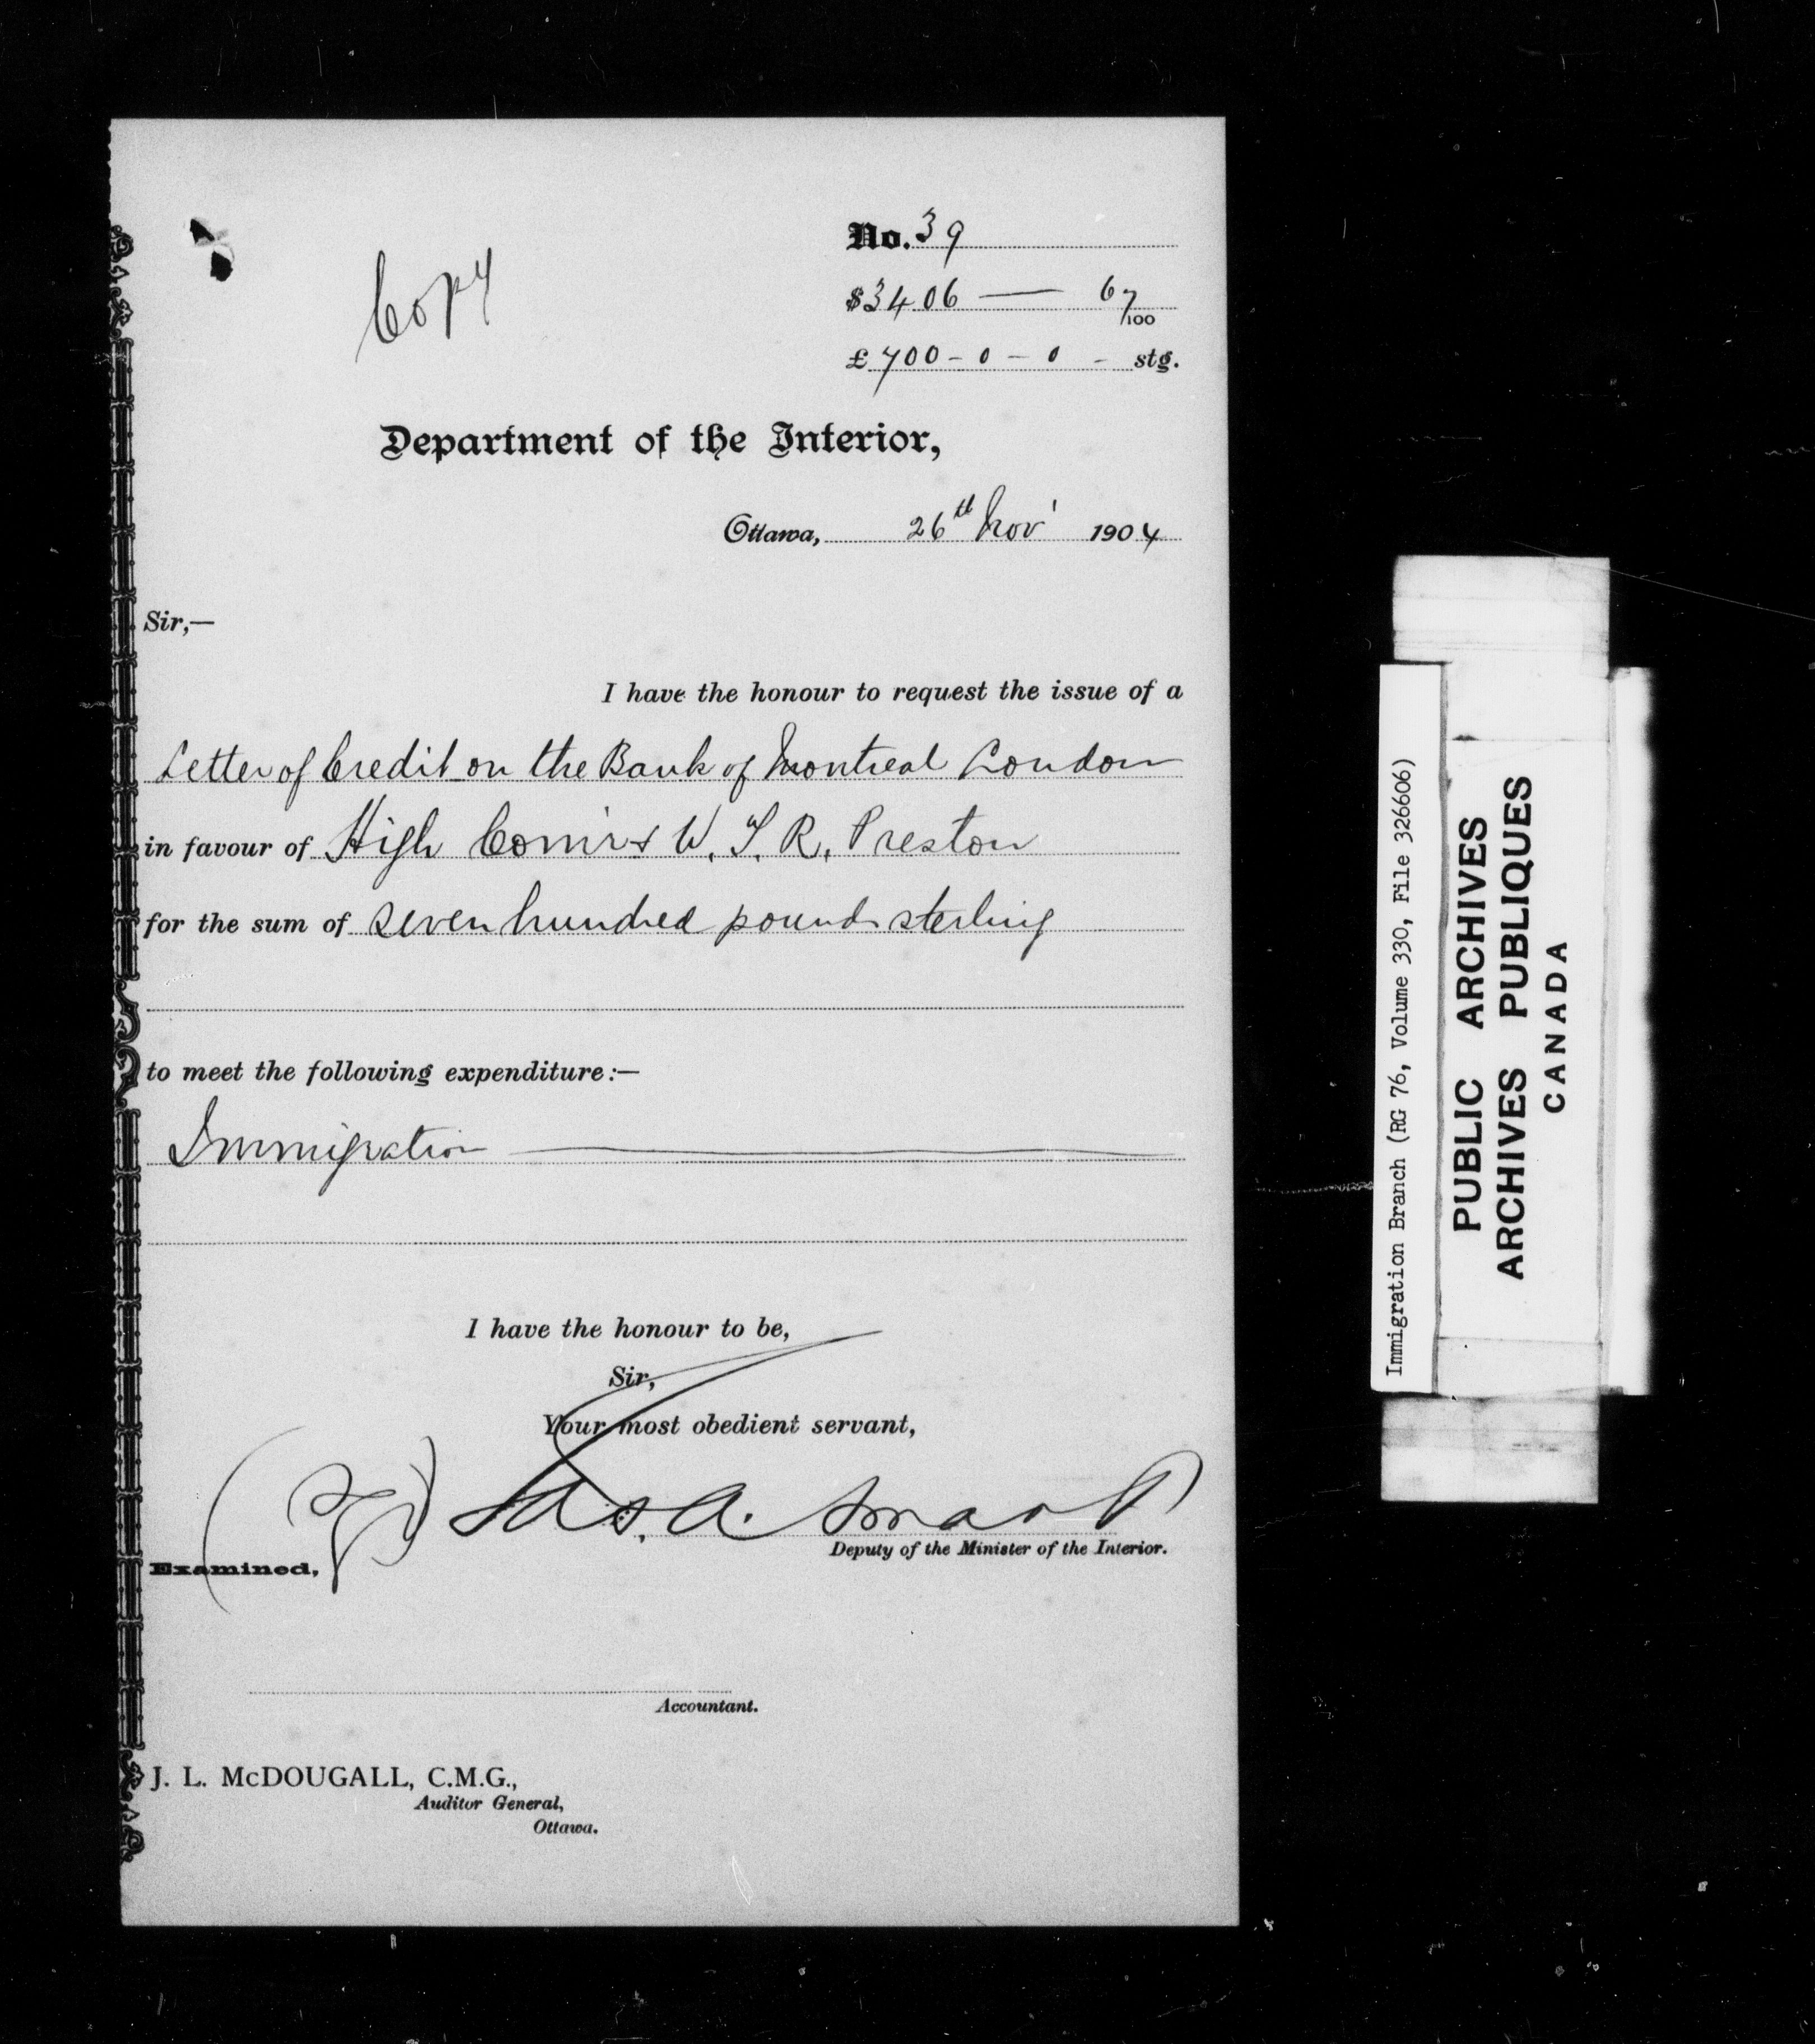 Copy
No. 39
$3406 — 67/100
£ 700 - 0 - 0 - stg.
Department of the Interior,
Ottawa, 26th Nov' 1904
Sir,—
I have the honour to request the issue of a
Letter of Credit on the Bank of Montreal London
in favour of High Comr & W. T. R. Preston
for the sum of seven hundred pounds sterling
to meet the following expenditure:—
Immigration
I have the honour to be,
Sir,
Your most obedient servant,
Jas. A. Smart
Deputy of the Minister of the Interior.
Examined,
Accountant.
J. L. McDOUGALL, C.M.G.,
Auditor General,
Ottawa.
Immigration Branch (RG 76, Volume 330, File 326606)
PUBLIC ARCHIVES
ARCHIVES PUBLIQUES
CANADA